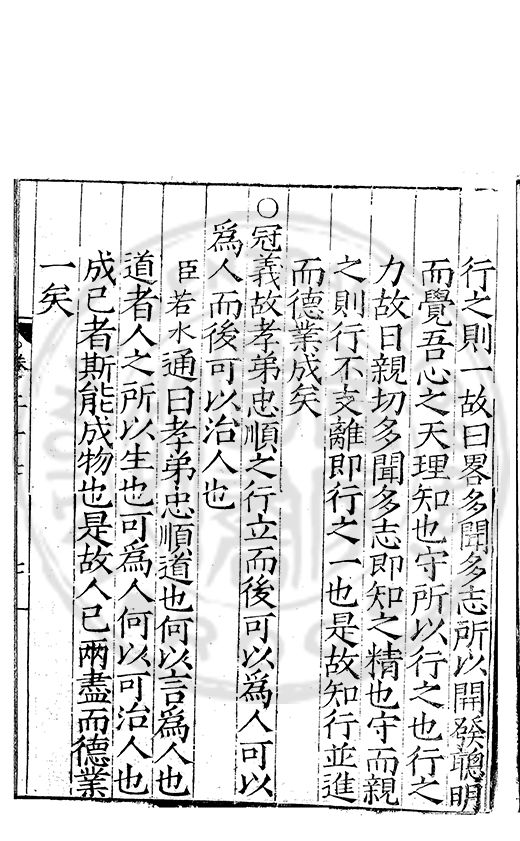 行之則一故曰畧多聞多志所以開發聰明
而覺吾心之天理知也守所以行之也行之
力故曰親切多聞多志即知之精也守而親
之則行不支離即行之一也是故知行並進
而德業成矣
○冠義故孝弟忠順之行立而後可以爲人可以
爲人而後可以治人也
臣若水通曰孝弟忠順道也何以言爲人也
道者人之所以生也可爲人何以可治人也
成己者斯能成物也是故人己兩盡而德業
一矣